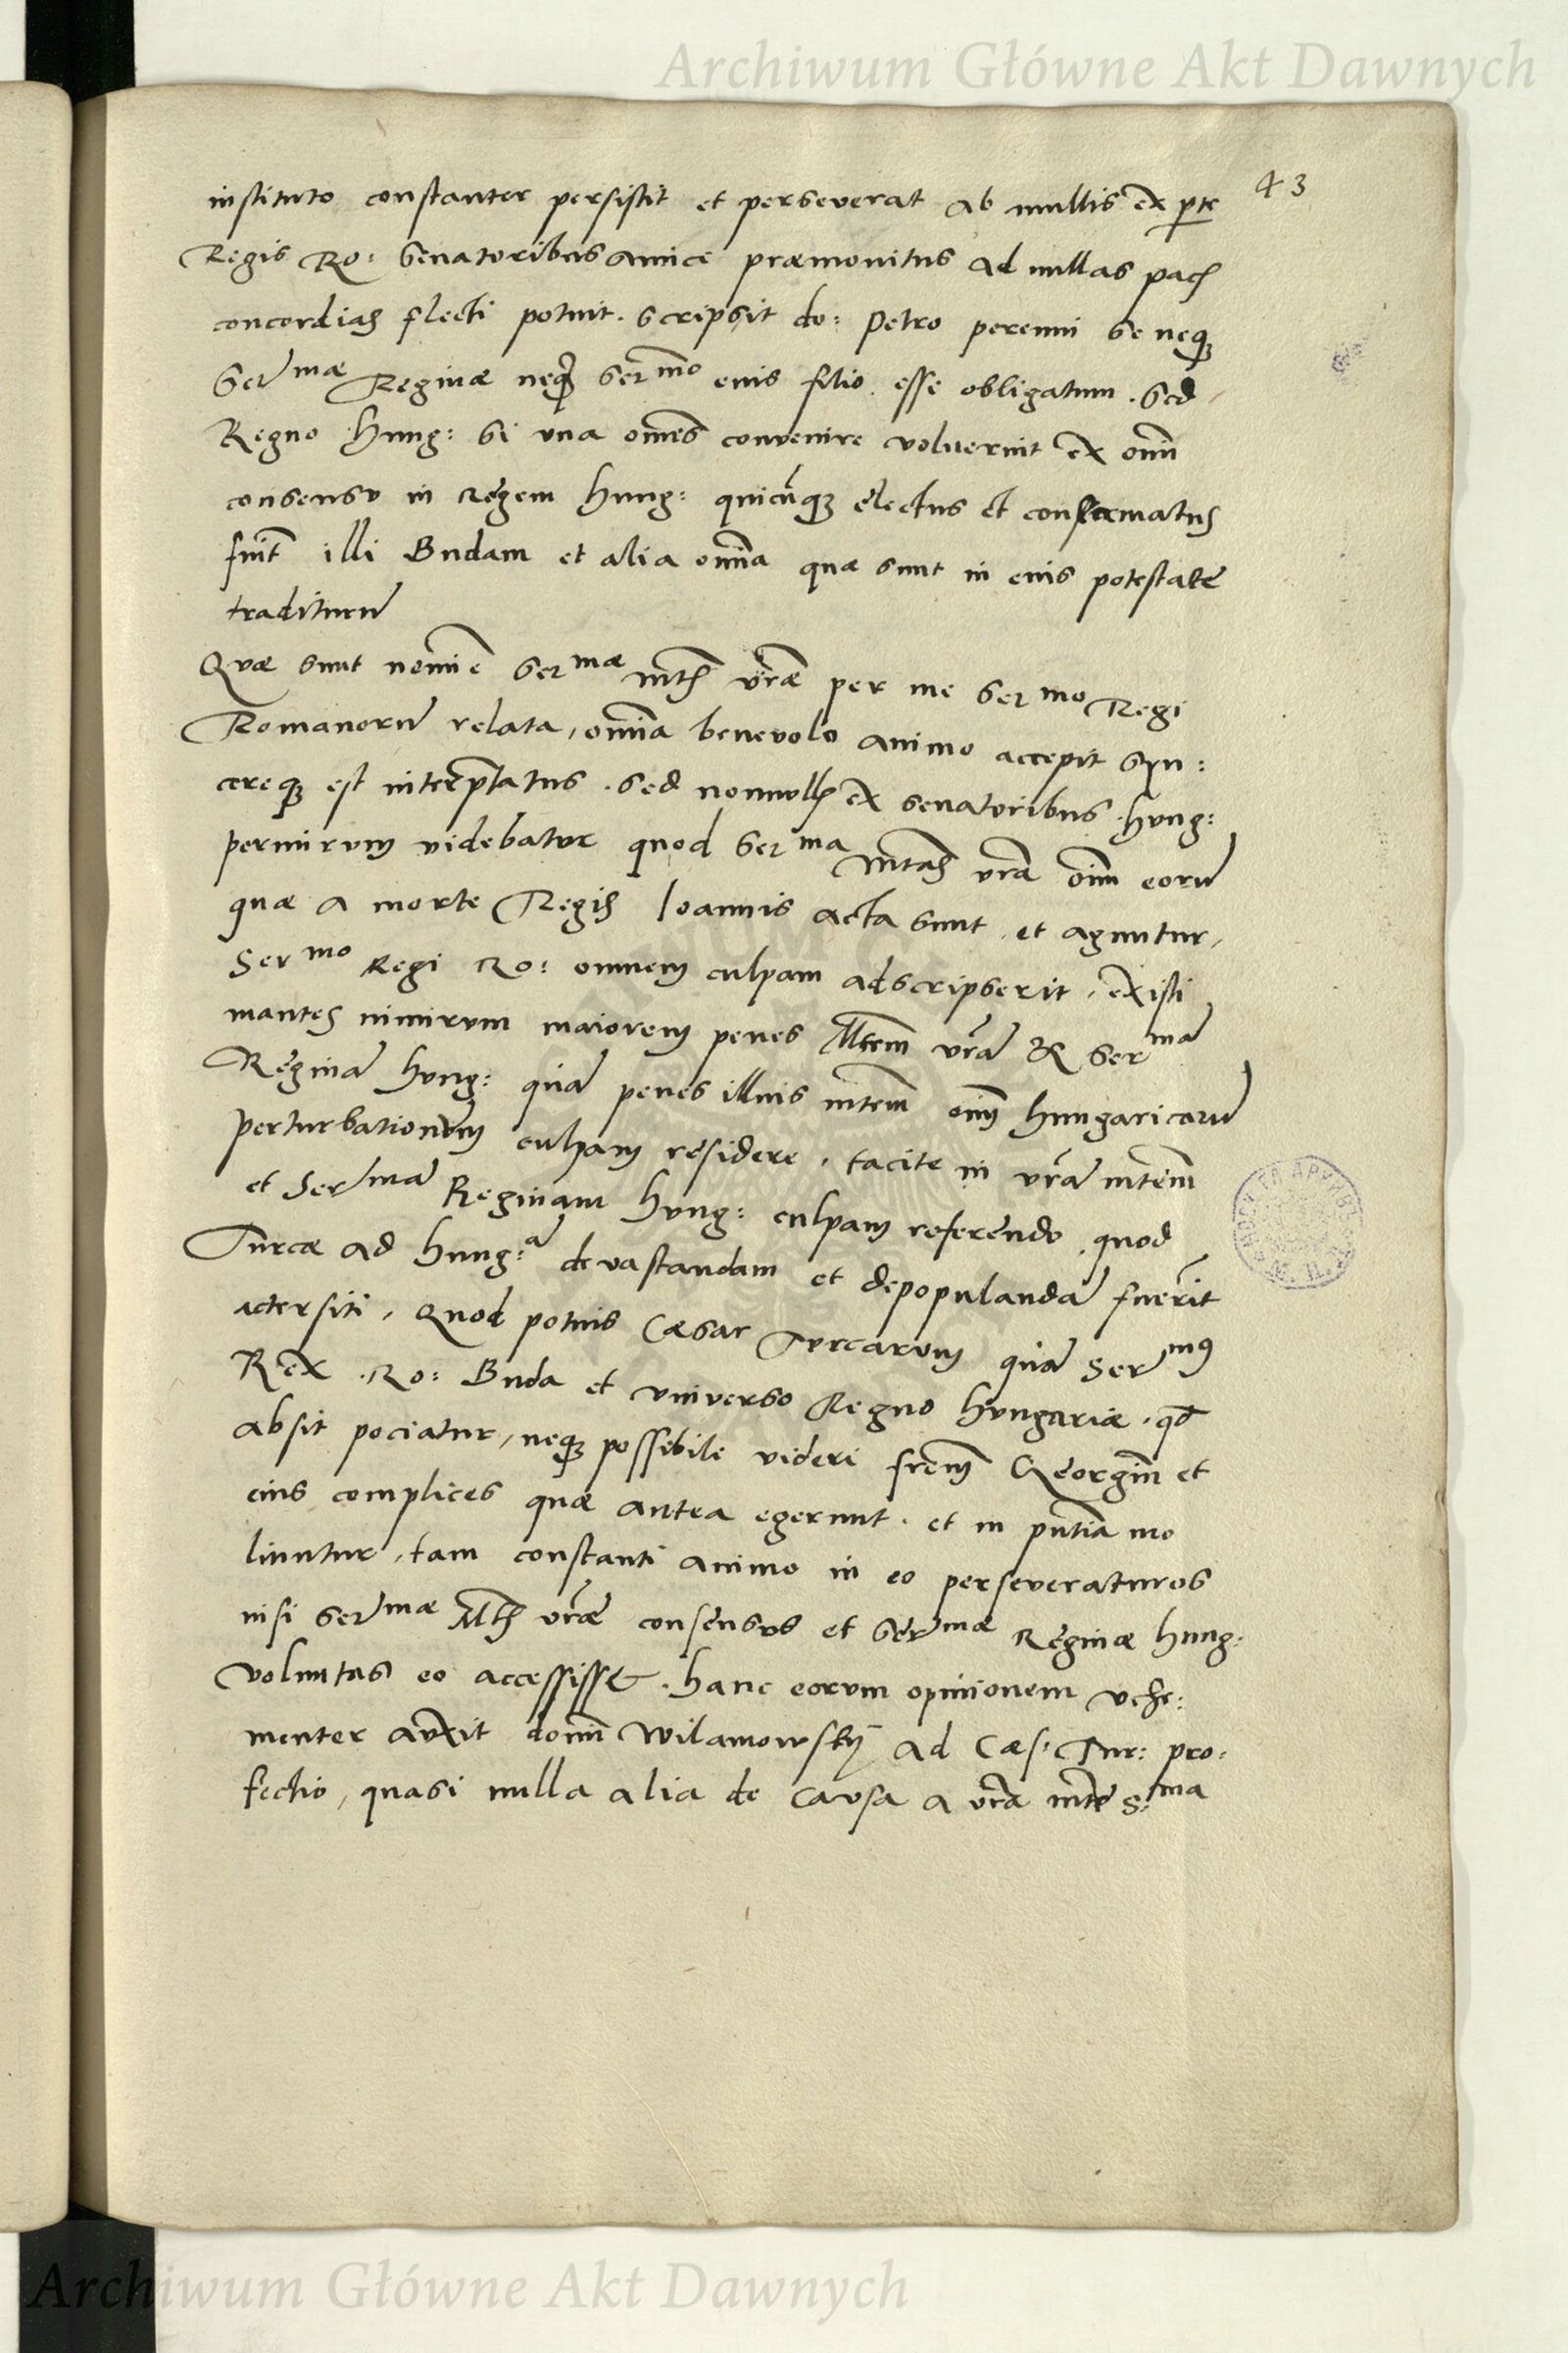 Archiwum Główne Akt Dawnych
43
instituto constanter persistit et perseverat ab multis ex pte
Regis Ro: Senatoribus amice præmonitus ad nullas pacis
concordias flecti potuit. scripsit do: Petro perenni se neqꝫ
Serᵐᵃᵉ Reginæ neqꝫ Serᵐᵒ euis filio esse obligatum. Sed
Regno Hung: Si una om̃es convenire voluerint ex om̃i
consensu in regem Hung: quicũqꝫ electus et confirmatus
fuit̃ illi Budam et alia om̃ia quæ sunt in eius potestate
traditurũ
Quæ sunt nomĩe Serᵐᵃᵉ mtis vr̃æ per me Serᵐᵒ Regi
Romanorũ relata, om̃ia benevolo animo accepit syn:
cereqꝫ est interp̃tatus. Sed nonnullis ex senatoribus Hung:
permirum videbatur quod Serᵐᵃ mtas vr̃a oĩm eorũ
quæ a morte Regis Ioannis acta sunt et aguntur,
Serᵐᵒ Regi Ro: omnem culpam adscripserit, existi
mantes nimirum maiorem penes Mtem̃ vr̃ã & Serᵐᵃ̃
Reginã Hung: quã penes illius mtem̃ oĩm hungaricarũ
perturbationum culpam residere, tacite in vr̃ã mtem̃
et Serᵐᵃ̃ Reginam Hung: culpam referendo, quod
Turcæ ad Hung:ᵃ̃ devastandam et depopulandã fuer̃it
accersiti, quod potius Cæsar Turcarum quã Serᵐᵘˢ
Rex Ro: Buda et universo Regno Hungariæ, qđ
absit pociatur, neqꝫ possibile videri frem̃ Georgiũm et
eius complices quæ antea egerunt. et in p̃ntia mo
liuntur, tam constanti animo in eo perseveraturos
nisi Serᵐᵃᵉ Mtis vr̃æ consensus et Serᵐᵃᵉ Reginæ Hung:
voluntas eo accessisset. hanc eorum opinionem vehe:
menter auxit domĩ Wilamowsky ad Cæs: Tur: pro:
fectio, quasi nulla alia de causa a vr̃a mtẽ S:ᵐᵃ
Archiwum Główne Akt Dawnych